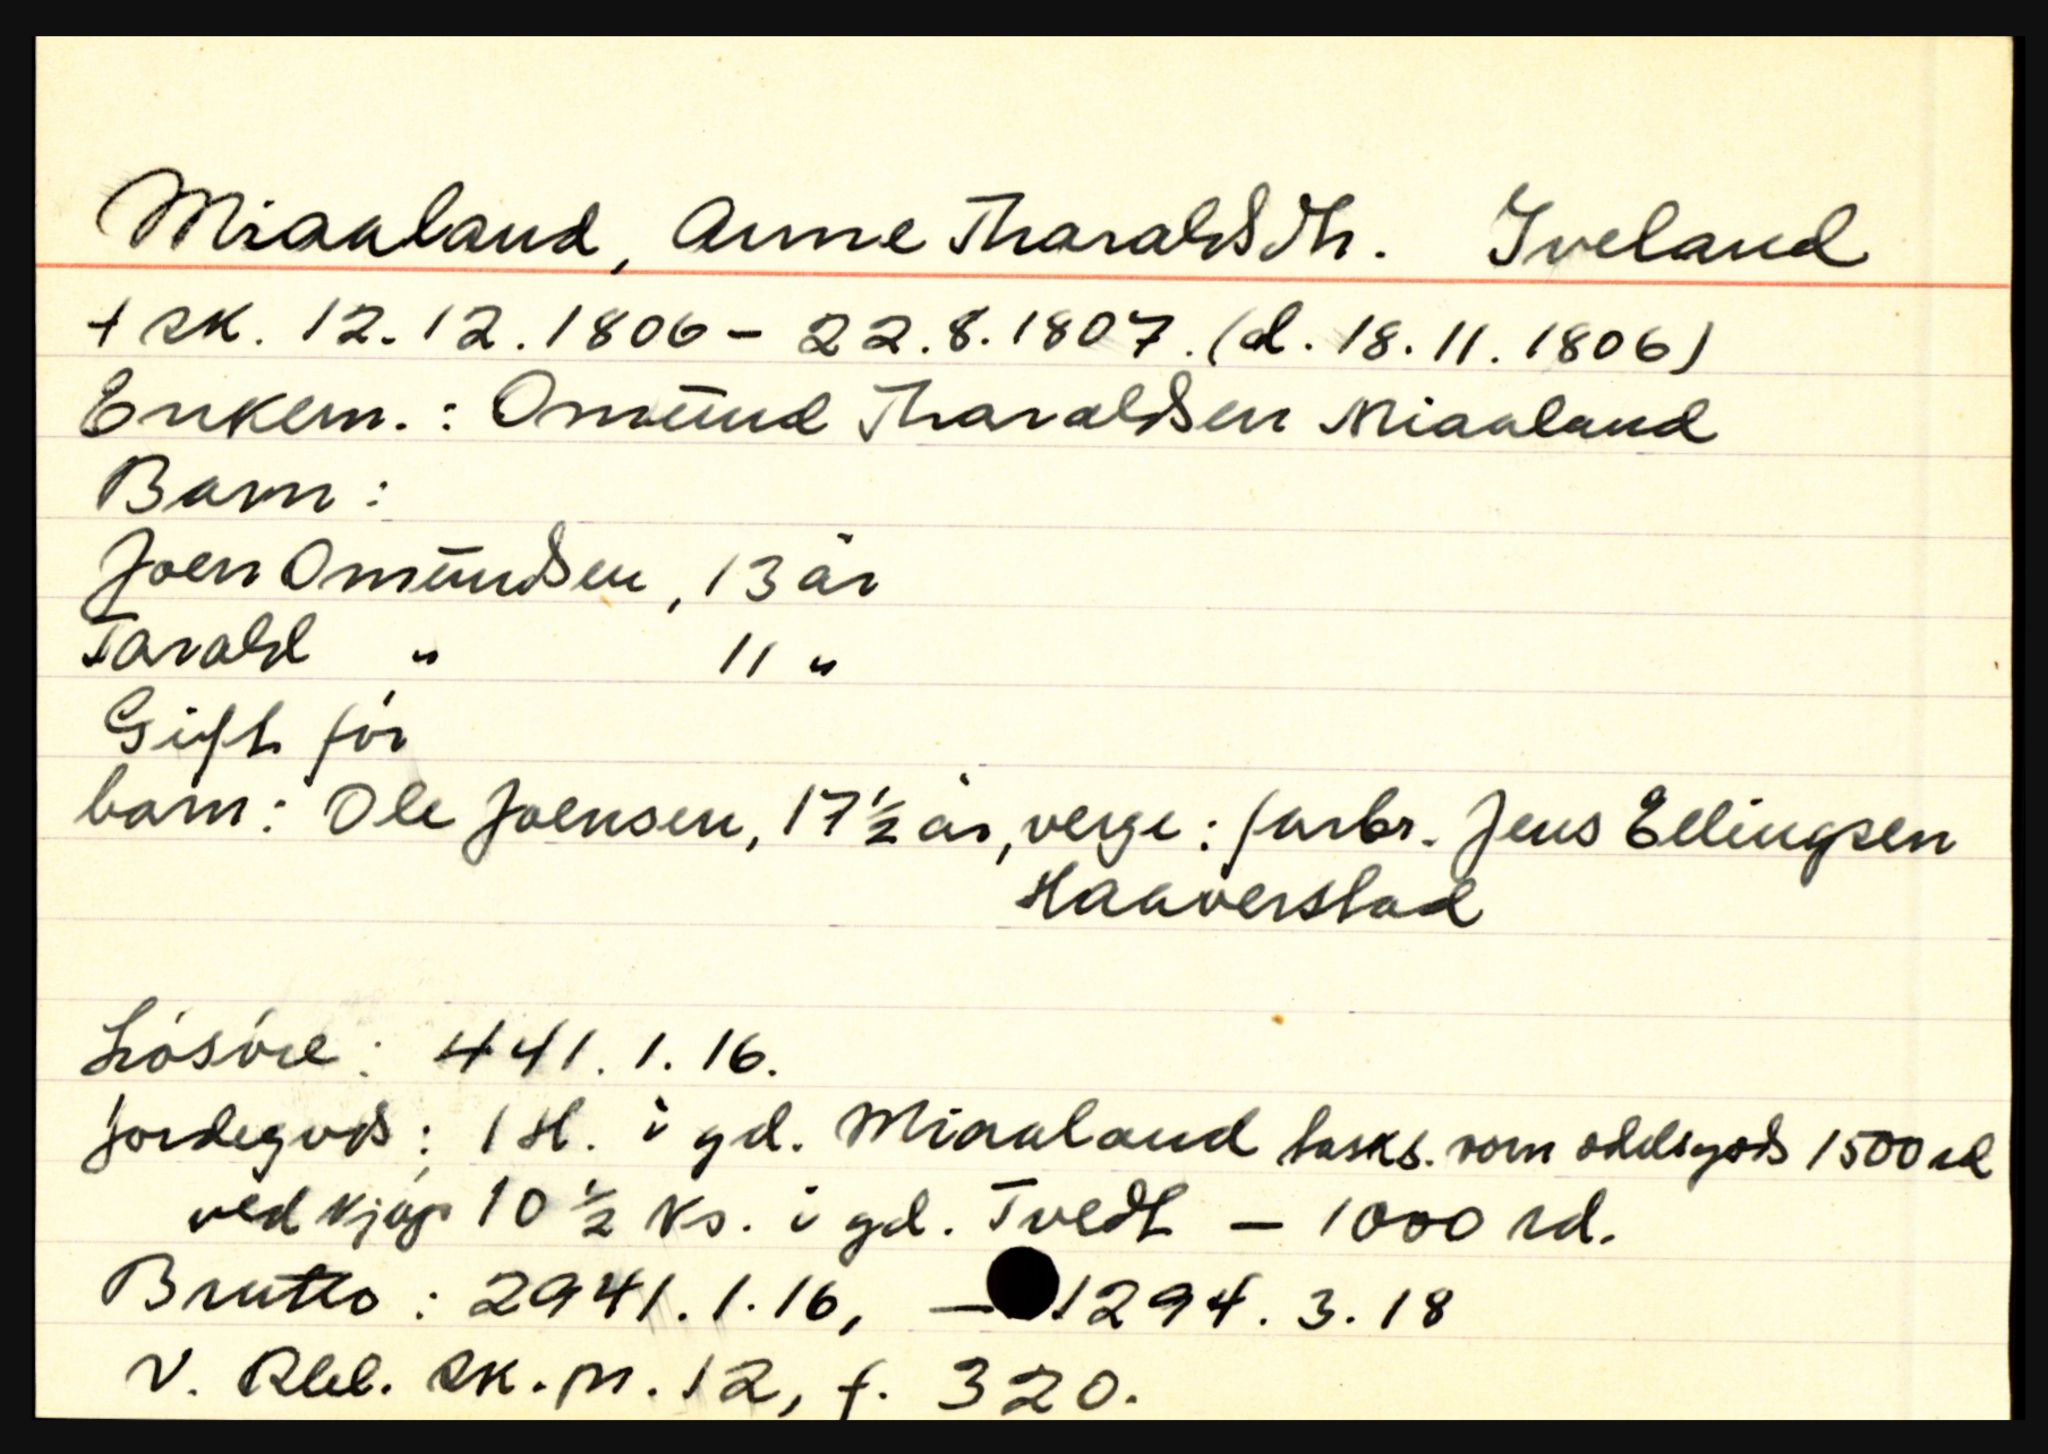 Miaaland, Anne Tharaldsdtr. Iveland
† sk. 12.12.1806 - 22.8.1807. (d. 18.11.1806)
Enkem.: Omund Tharaldsen Miaaland
Barn:
Joen Omundsen, 13 år
Tarald " 11 "
Gift før
barn: Ole Joensen, 17 1/2 år, verge: farbr. Jens Ellingsen
Haaverstad
Løsøre: 441. 1. 16.
Jordegods: 1 H. i gd. Miaaland takks. som oddsgods 1500 rd
ved kjøp 10 1/2 ks. i gd. Tvedt - 1000 rd.
Brutto: 2941. 1. 16, - 1294. 3. 18
V. Rbl. sk. pr. 12, f. 320.